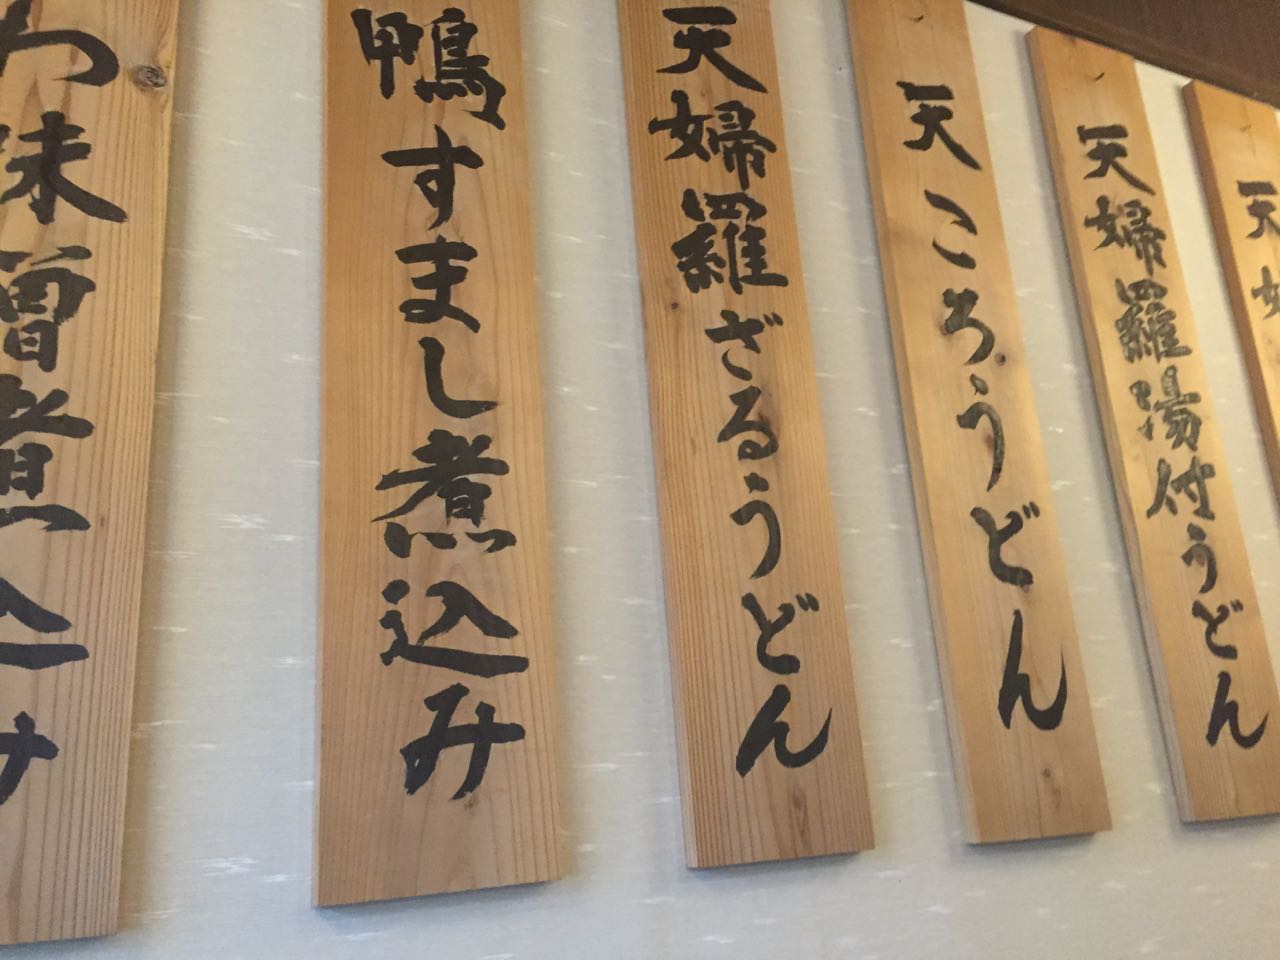 天婦
天婦羅湯付うどん
天ころうどん
天婦羅ざるうどん
鴨すまし煮込み
わ味噌煮込み